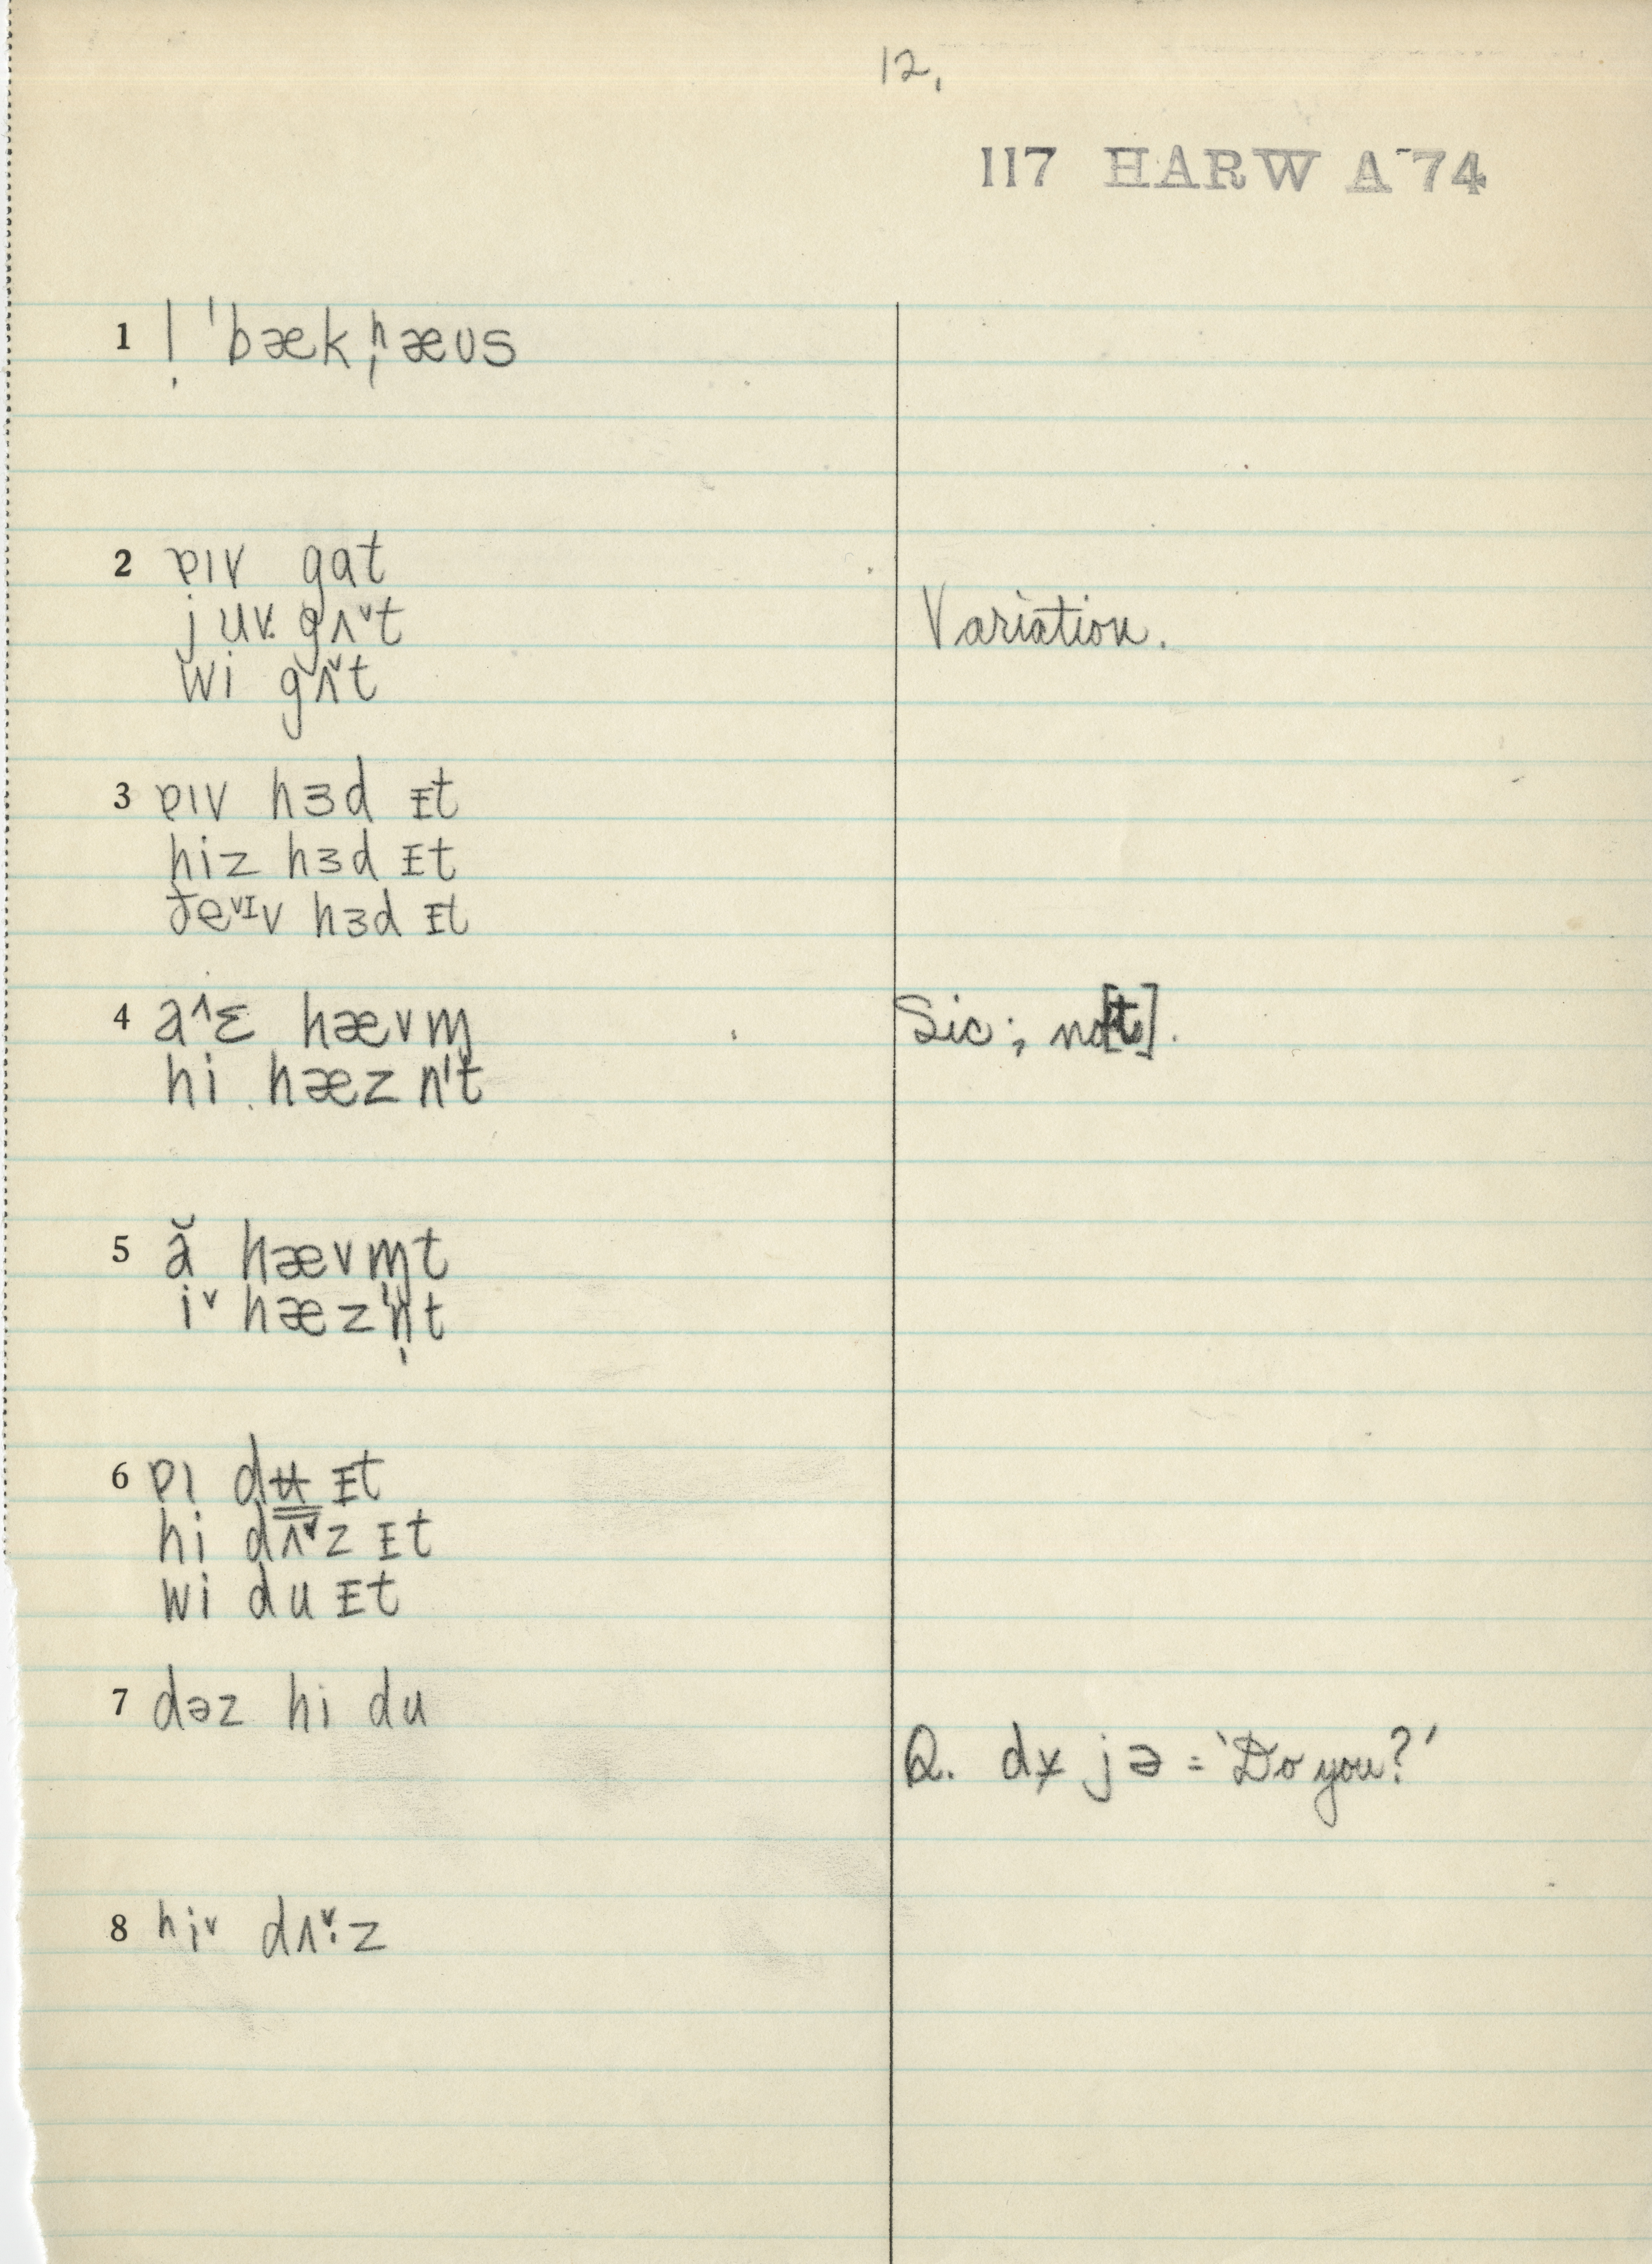 12.
117 HARW A-74
1 | ˈbækˌhæʊs
2 ðɪv gat
juv. gʌ˅t
Variation.
wi gʌ˅t
3 ðɪv hɜd ɪt
hiz hɜd ɪt
ðe˅ɪv hɜd ɪt
4 a˄ɛ hævm̩
Sic; no [t].
hi hæz n't
5 ă hævm̩t
i˅ hæzn̩t
6 dʉ ɪt
hi dʌ˅z ɪt
wi du ɪt
7 dəz hi du
Q. jə = 'Do you?'
8 hi˅ dʌ˅·z